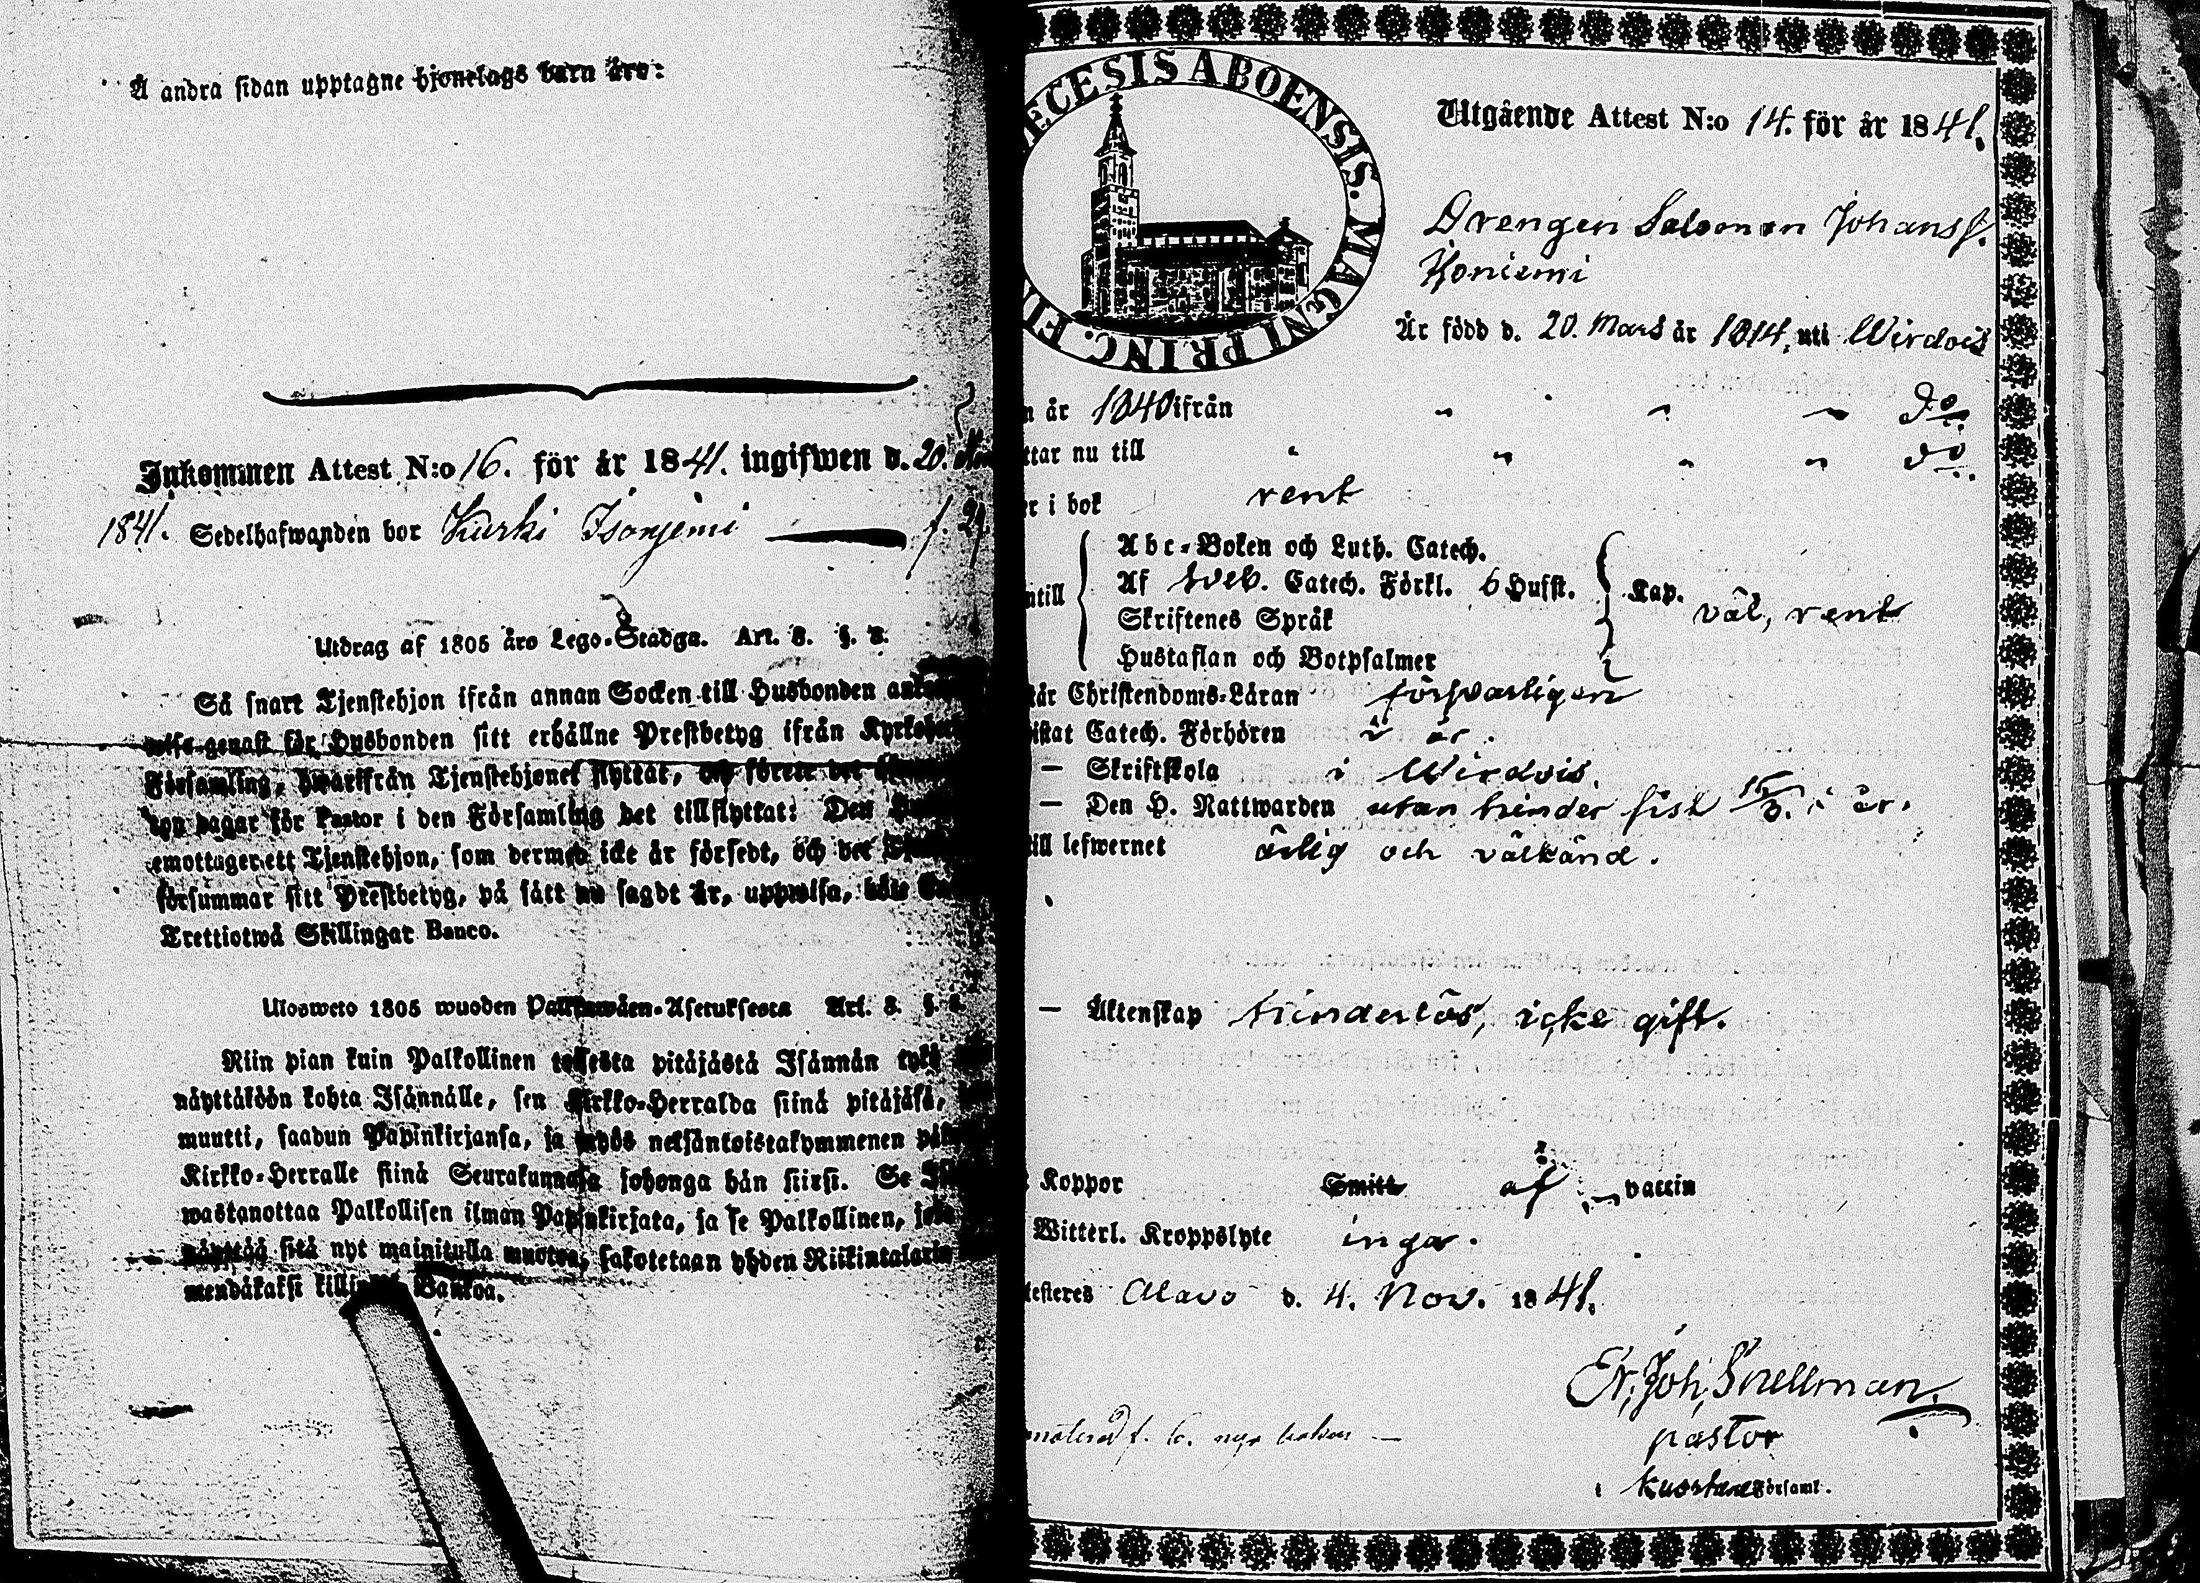 Å andra sidan upptagne hjonelags barn äro:
Inkommen Attest N:o 16. för år 1841. ingifwen d. 20.
1841. Sedelhafwanden bor Kurki Isoniemi f.
Utdrag af 1805 års Lego-Stadga. Art. 3. §. 3.
Så snart Tjenstehjon ifrån annan Socken till Husbonden
wise genast för Husbonden sitt erhållne Prestbetyg ifrån
Församling, hwarifrån Tjenstehjonet flyttat, och förete det
ton dagar för Pastor i den Församling det tillflyttat: Den
emottager ett Tjenstehjon, som dermed icke är försedt, och det
försummar sitt Prestbetyg, på sätt nu sagdt är, uppwisa, böte
Trettiotwå Skillingar Banco.
Uloswето 1805 wuoden Palkkawäen-Asetuksesta Art. 3. §.
Niin pian kuin Palkollinen toisesta pitäjästä Isännän tykö
näyttäköön kohta Isännälle, sen Kirkko-Herralda siinä pitäjäsä,
muutti, saadun Papinkirjansa, ja myös neljäntoistakymmenen
Kirkko-Herralle siinä Seurakunnasa johonga hän siirsi. Se
wastanottaa Palkollisen ilman Papinkirjata, ja se Palkollinen, joka
näyttää sitä nyt mainitulla muotoa, sakotetaan yhden Riikintalarin
mendäkaksi killingiä Bankoa.
ECESIS ABOENSIS. MAGNI PRINC. FIN
Utgående Attest N:o 14. för år 1841.
Drengen Salomon Johanss.
Koniemi
Är född d. 20. Mars år 1814, uti Wirdois
n år 1840 ifrån " " " do.
ttar nu till " " " " do.
er i bok rent
Abc-Boken och Luth. Catech.
ntill Af Sveb. Catech. Förkl. 6 Hufst. Kap. väl, rent
Skriftenes Språk
Hustaflan och Botpsalmer
tår Christendoms-Läran försvarligen
istat Catech. Förhören i år.
— Skriftskola i Wirdois.
— Den H. Nattwarden utan hinder sist i år.
till lefwernet ärlig och välkänd.
— Äktenskap hinderlös, icke gift.
Koppor Smitt af vaccin
Witterl. Kroppslyte inga.
testeres Alavo d. 4. Nov. 1841.
Er. Joh. Snellman.
pastor
noterad f. 6. nya boken —
i Kuortane Församl.